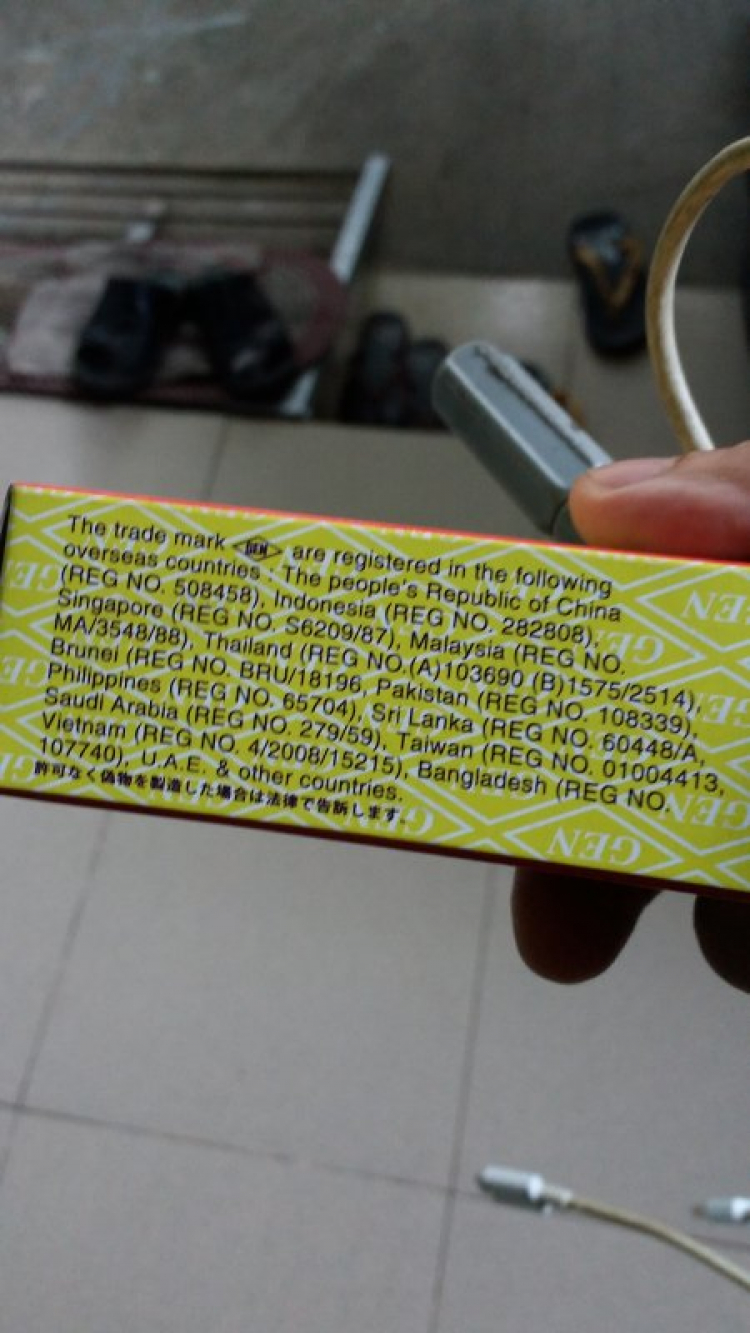 The trade mark GEN are registered in the following
overseas countries : The people's Republic of China
(REG NO. 508458), Indonesia (REG NO. 282808),
Singapore (REG NO. S6209/87), Malaysia (REG NO.
MA/3548/88), Thailand (REG NO.(A)103690 (B)1575/2514),
Brunei (REG NO. BRU/18196, Pakistan (REG NO. 108339),
Philippines (REG NO. 65704), Sri Lanka (REG NO. 60448/A,
Saudi Arabia (REG NO. 279/59), Taiwan (REG NO. 01004413,
Vietnam (REG NO. 4/2008/15215), Bangladesh (REG NO.
107740), U.A.E. & other countries.
許可なく偽物を製造した場合は法律で告訴します。
GEN
GEN
GEN
GEN
GEN